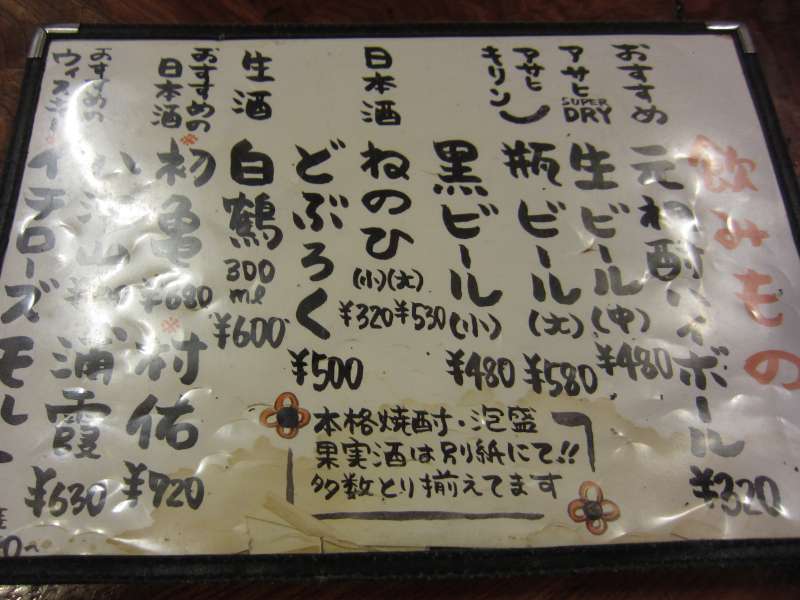 飲みもの
おすすめ
元祖酎ハイボール
¥320
アサヒ
SUPER
DRY
生ビール(中)
¥480
アサヒ
キリン
瓶ビール(大)
¥580
黒ビール(小)
¥480
日本酒
ねのひ
(小)(大)
¥320 ¥530
どぶろく
¥500
生酒
白鶴
300
ml
¥600
おすすめの
日本酒
※初亀
¥680
※村佑
¥920
浦霞
¥630
おすすめの
ウィスキー
イチローズモルト
本格焼酎・泡盛
果実酒は別紙にて!!
多数とり揃えてます